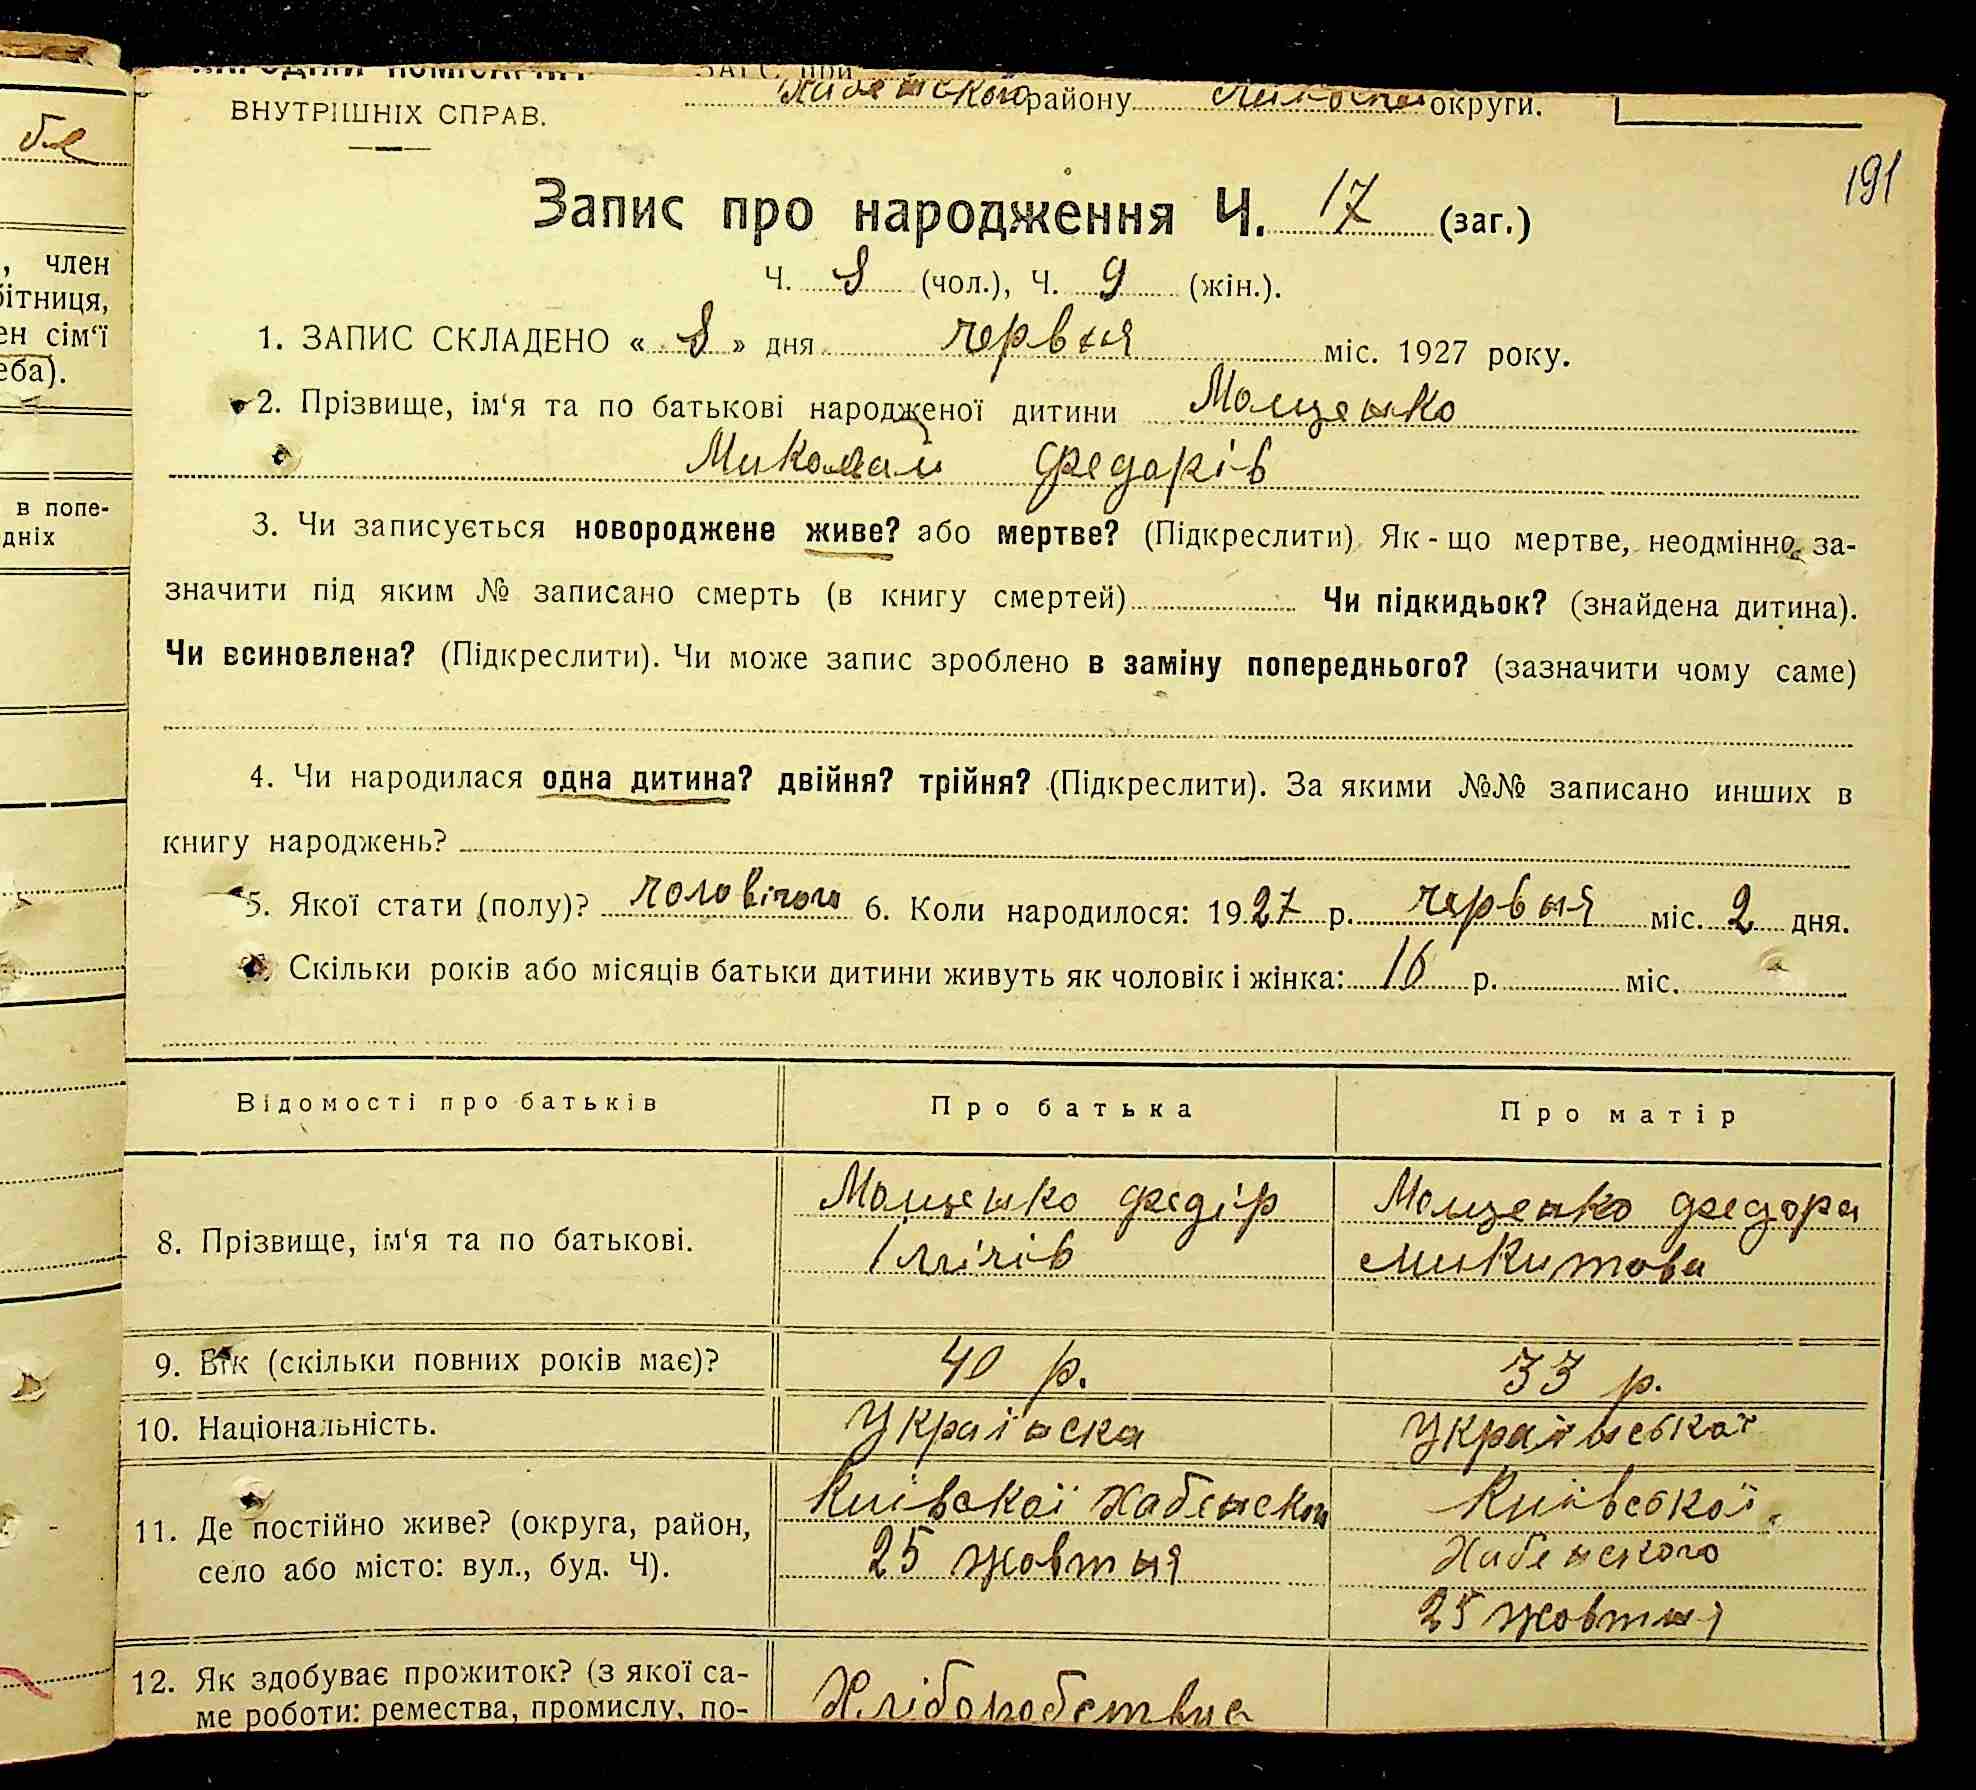 бе
, член
бітниця,
ен сім‘ї
еба).
в попе-
дніх
НАРОДНІЙ КОМІСАРІЯТ ЗАГС при
ВНУТРІШНІХ СПРАВ. Хабенського району округи.
191
Запис про народження Ч. 17 (заг.)
Ч. 8 (чол.), Ч. 9 (жін.).
1. ЗАПИС СКЛАДЕНО « 8 » дня червня міс. 1927 року.
2. Прізвище, ім‘я та по батькові народженої дитини Мощенко
Миколай Федорів
3. Чи записується новороджене живе? або мертве? (Підкреслити) Як - що мертве, неодмінно за-
значити під яким № записано смерть (в книгу смертей) Чи підкидьок? (знайдена дитина).
Чи всиновлена? (Підкреслити). Чи може запис зроблено в заміну попереднього? (зазначити чому саме)
4. Чи народилася одна дитина? двійня? трійня? (Підкреслити). За якими №№ записано инших в
книгу народжень?
5. Якої стати (полу)? чоловічого 6. Коли народилося: 1927 р. червня міс. 2 дня.
Скільки років або місяців батьки дитини живуть як чоловік і жінка: 16 р. міс.
Відомості про батьків Про батька Про матір
8. Прізвище, ім‘я та по батькові. Мощенко Федір Мощенко Федора
Ілічів Микитова
9. Вік (скільки повних років має)? 40 р. 33 р.
10. Національність. Українска Української
11. Де постійно живе? (округа, район, Київскої Хабенскои Київської
село або місто: вул., буд. Ч). 25 жовтня Хабенского
25 жовтня
12. Як здобуває прожиток? (з якої са- Хліборобство
ме роботи: ремества, промислу, по-